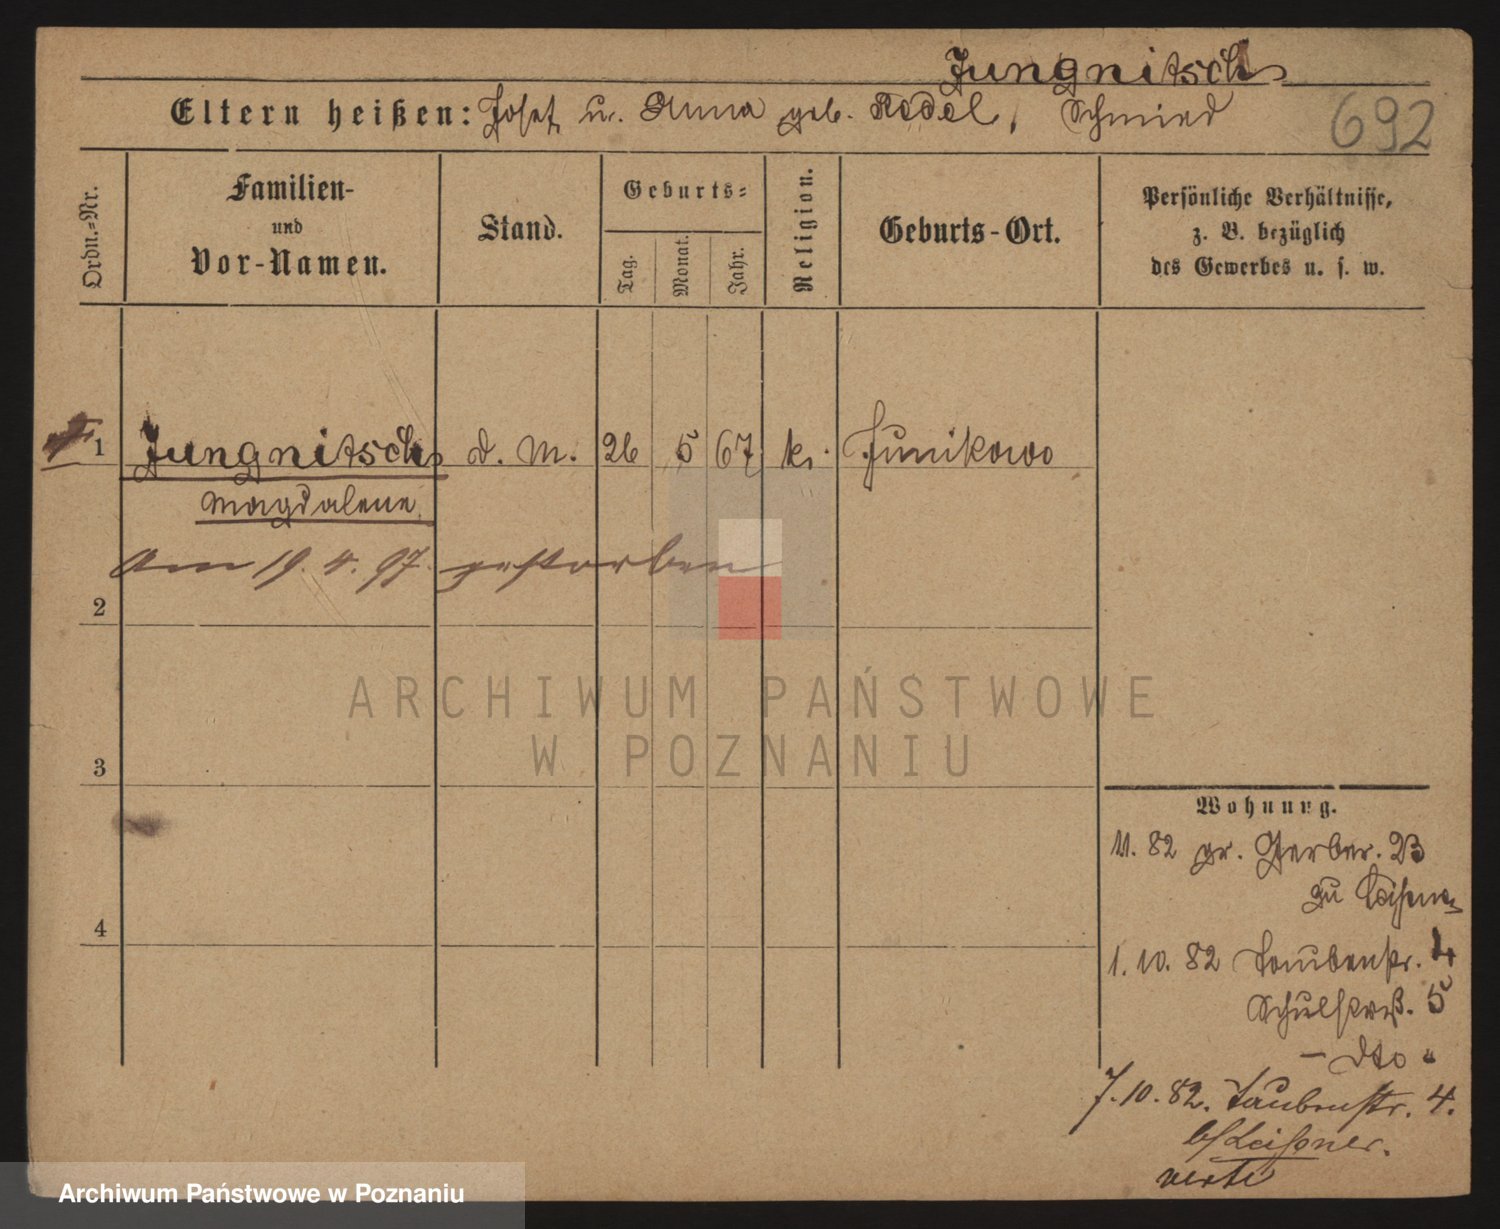 Jungnitsch
Eltern heißen: Josef u. Anna geb. Redel, Schmied
692
Ordn.=Nr.
Familien-
und
Vor-Namen.
Stand.
Geburts=
Tag.
Monat.
Jahr.
Religion.
Geburts-Ort.
Persönliche Verhältnisse,
z. B. bezüglich
des Gewerbes u. s. w.
1 Jungnitsch d. M. 26 5 67 k. Junikowo
Magdalene
Am 19. 4. 97. gestorben
2
ARCHIWUM PAŃSTWOWE
W POZNANIU
3
Wohnung.
11. 82 gr. Gerber. 23
zu
4
1. 10. 82 Taubenstr. 4
Schulstraß. 5
- dto "
7. 10. 82. Taubenstr. 4.
b/ Leißner.
verte
Archiwum Państwowe w Poznaniu